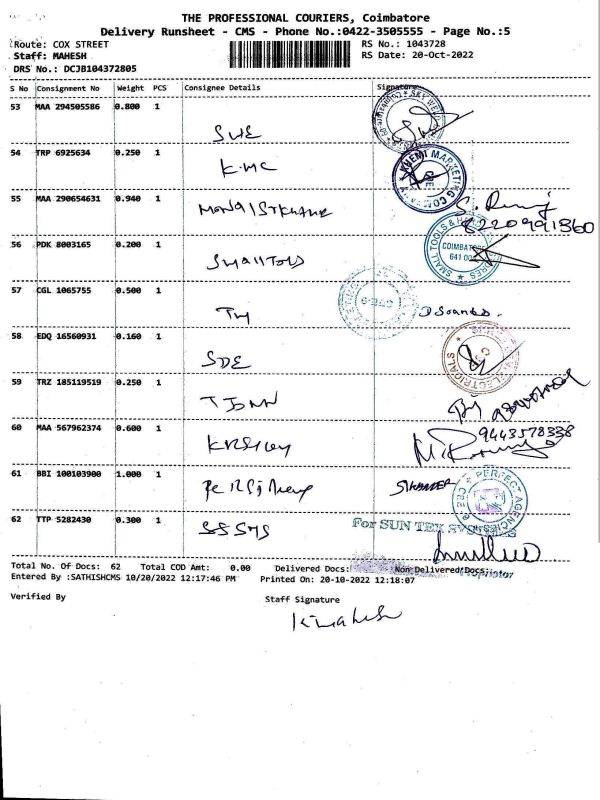 THE PROFESSIONAL COURIERS, Coimbatore
Delivery Runsheet - CMS - Phone No.:0422-3505555 - Page No.:5
Route: COX STREET
RS No.: 1043728
Staff: MAHESH
RS Date: 20-Oct-2022
DRS No.: DCJB104372805
S No Consignment No Weight PCS Consignee Details Signature
53 MAA 294505586 0.800 1
SWE
54 TRP 6925634 0.250 1
K-MC
55 MAA 290654631 0.940 1
8220991360
56 PDK 8003165 0.200 1
Small Tools
SMALL TOOLS &
COIMBATORE
641 001
57 CGL 1065755 0.500 1
58 EDQ 16560931 0.160 1
SDE
ELECTRICALS
59 TRZ 185119519 0.250 1
60 MAA 567962374 0.600 1
9443578338
61 BBI 100103900 1.000 1
PERFECT AGENCIES
62 TTP 5282430 0.300 1
SSSYS
For SUN TEX SYSTEMS
Total No. Of Docs: 62 Total COD Amt: 0.00 Delivered Docs: Non Delivered Docs:
Proprietor
Entered By :SATHISHCMS 10/20/2022 12:17:46 PM Printed On: 20-10-2022 12:18:07
Verified By Staff Signature
K. Mahesh